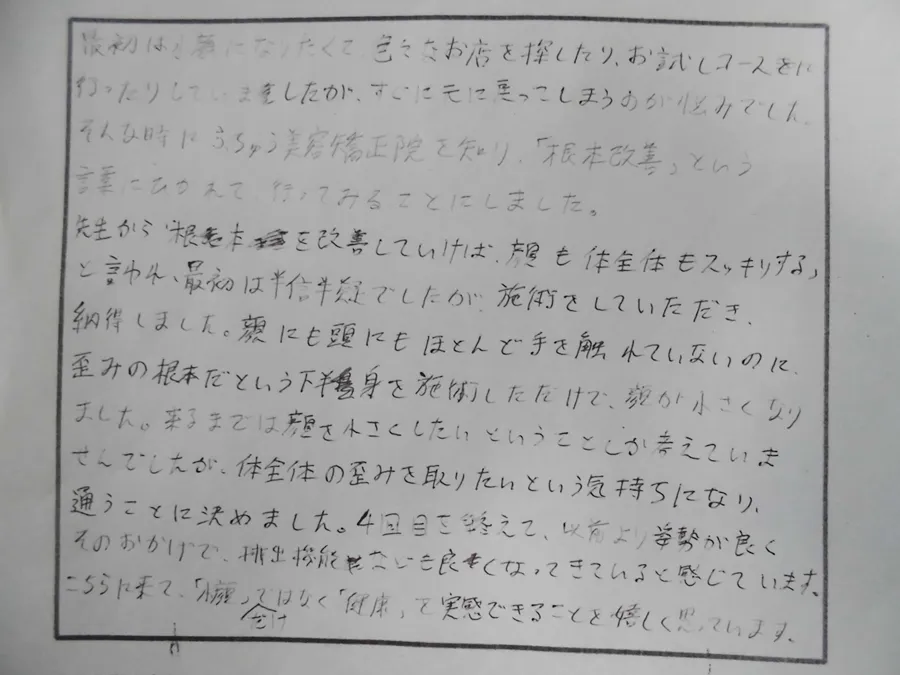 最初は小顔になりたくて、色々なお店を探したり、お試しコースをに
行ったりしていましたが、すぐにモに戻ってしまうのが悩みでした。
そんな時にふちゅう美容矯正院を知り、「根本改善」という
言葉にひかれて、行ってみることにしました。
先生から「根本を改善していけば、顔も体全体もスッキリする」
と言われ、最初は半信半疑でしたが、施術をしていただき、
納得しました。顔にも頭にもほとんど手を触れていないのに、
歪みの根本だという下半身を施術しただけで、顔が小さくなり
ました。来るまでは顔を小さくしたいということしか考えていま
せんでしたが、体全体の歪みを取りたいという気持ちになり、
通うことに決めました。4回目を終えて、以前より姿勢が良く
そのおかげで、排出機能なども良くなってきていると感じています。
こちらに来て、「小顔」だけではなく「健康」を実感できることを嬉しく思っています。